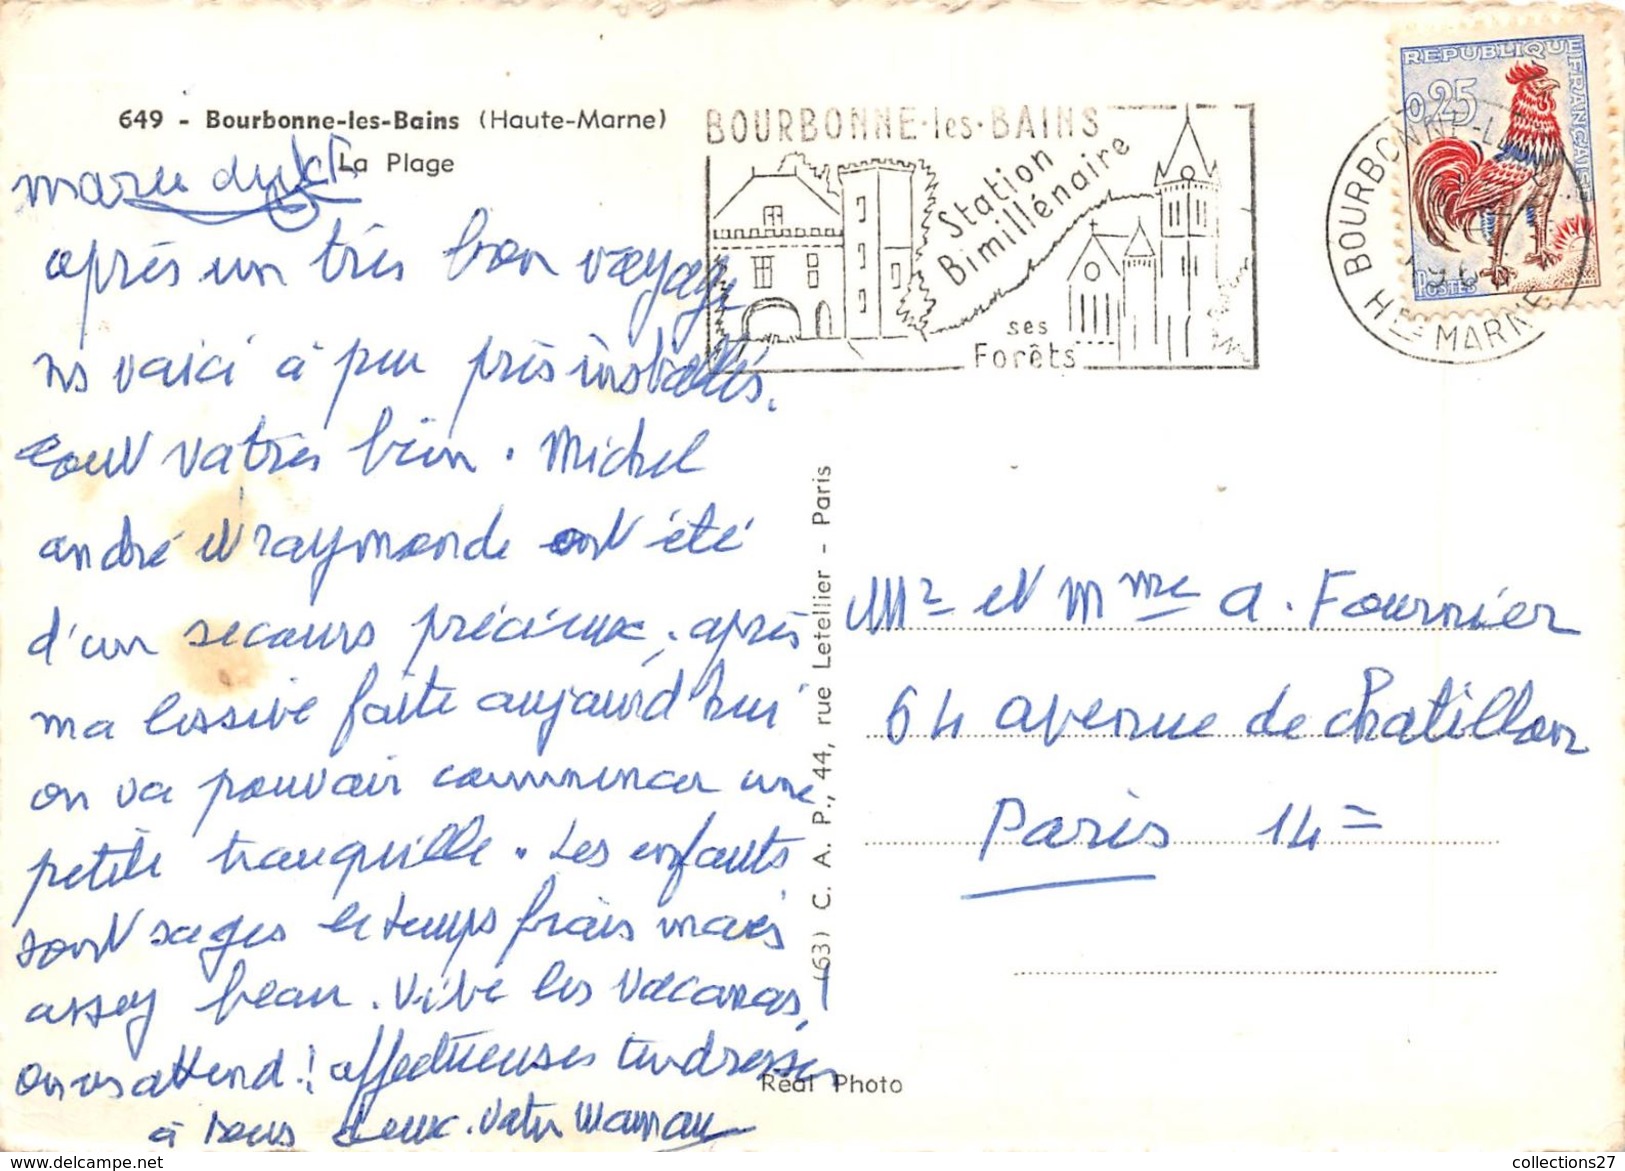 649 - Bourbonne-les-Bains (Haute-Marne)
La Plage
après un très bon voyage
ns voici à peu près installés.
tout va très bien. Michel
andré et raymonde ont été
d'un secours précieux, après
ma lessive faite aujourd'hui
on va pouvoir commencer une
petite tranquille. Les enfants
sont sages le temps frais mais
assez beau. Vive les vacances,!
on vs attend! affectueuses tendresses
à tous deux. Votre Maman
BOURBONNE-les-BAINS
Station
Bimillénaire
ses
Forêts
REPUBLIQUE FRANÇAISE
0,25
POSTES
BOURBONNE-LES
HTE MARNE
(63) C. A. P., 44, rue Letellier - Paris
Mr et Mme A. Fournier
64 avenue de chatillon
Paris 14=
Real Photo
collections27